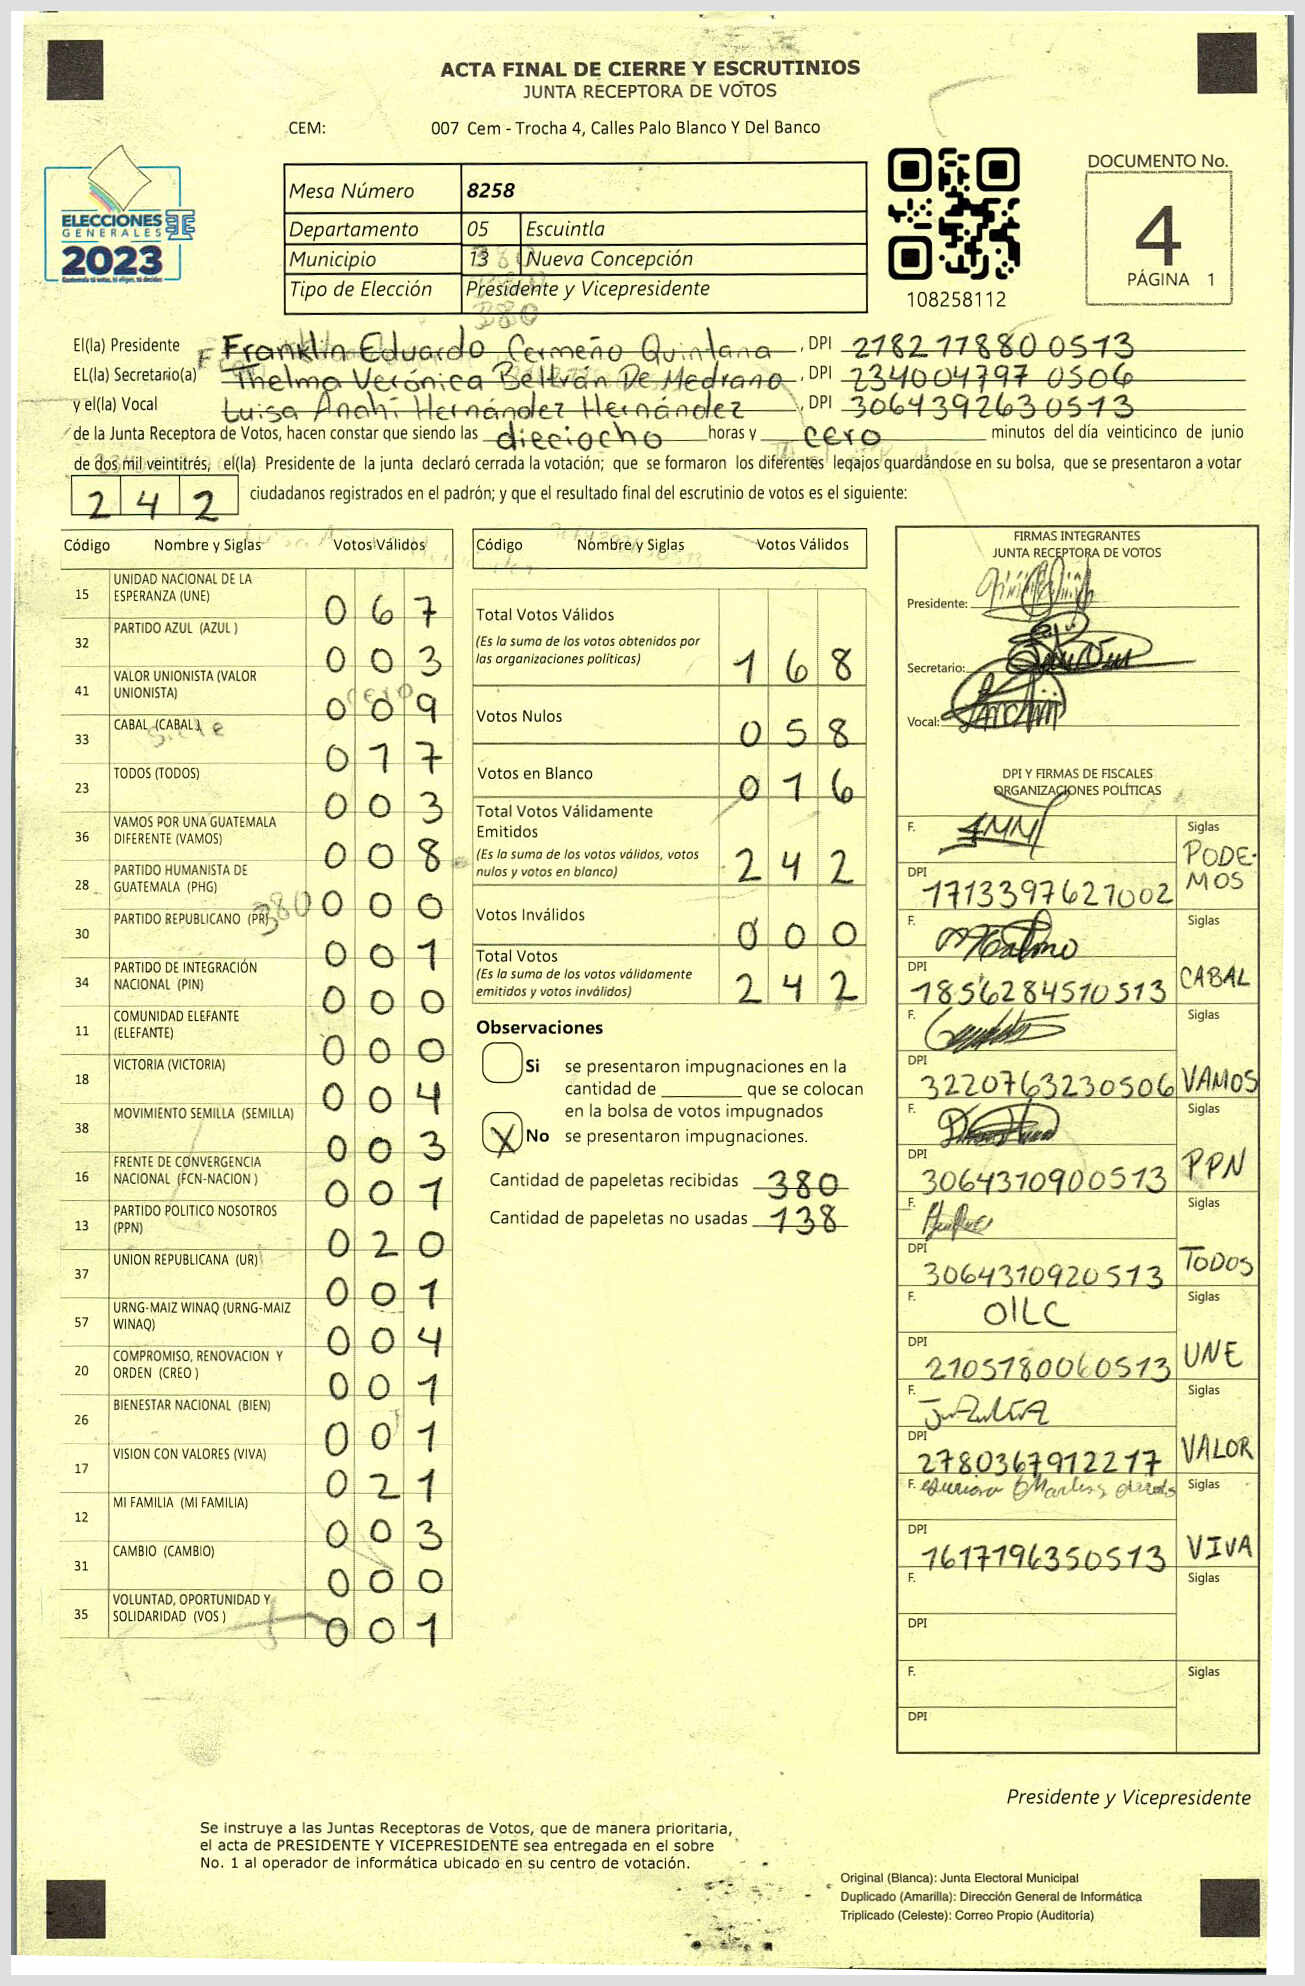 ACTA FINAL DE CIERRE Y ESCRUTINIOS
JUNTA RECEPTORA DE VOTOS
CEM: 007 Cem - Trocha 4, Calles Palo Blanco Y Del Banco
ELECCIONES
GENERALES
2023
Mesa Número 8258
Departamento 05 Escuintla
Municipio 13 Nueva Concepción
Tipo de Elección Presidente y Vicepresidente
380
108258112
DOCUMENTO No.
4
PÁGINA 1
El(la) Presidente Franklin Eduardo Cermeño Quintana, DPI 2182778800513
EL(la) Secretario(a) Thelma Verónica Beltrán De Medrano, DPI 2340047970506
y el(la) Vocal Luisa Anahí Hernández Hernández, DPI 3064392630513
de la Junta Receptora de Votos, hacen constar que siendo las dieciocho horas y cero minutos del día veinticinco de junio
de dos mil veintitrés, el(la) Presidente de la junta declaró cerrada la votación; que se formaron los diferentes legajos guardándose en su bolsa, que se presentaron a votar
242 ciudadanos registrados en el padrón; y que el resultado final del escrutinio de votos es el siguiente:
Código Nombre y Siglas Votos Válidos
15 UNIDAD NACIONAL DE LA ESPERANZA (UNE) 067
32 PARTIDO AZUL (AZUL ) 003
41 VALOR UNIONISTA (VALOR UNIONISTA) 009
33 CABAL (CABAL ) 017
23 TODOS (TODOS) 003
36 VAMOS POR UNA GUATEMALA DIFERENTE (VAMOS) 008
28 PARTIDO HUMANISTA DE GUATEMALA (PHG) 000
30 PARTIDO REPUBLICANO (PR) 001
34 PARTIDO DE INTEGRACIÓN NACIONAL (PIN) 000
11 COMUNIDAD ELEFANTE (ELEFANTE) 000
18 VICTORIA (VICTORIA) 004
38 MOVIMIENTO SEMILLA (SEMILLA) 003
16 FRENTE DE CONVERGENCIA NACIONAL (FCN-NACION ) 001
13 PARTIDO POLITICO NOSOTROS (PPN) 020
37 UNION REPUBLICANA (UR) 001
57 URNG-MAIZ WINAQ (URNG-MAIZ WINAQ) 004
20 COMPROMISO, RENOVACION Y ORDEN (CREO ) 001
26 BIENESTAR NACIONAL (BIEN) 001
17 VISION CON VALORES (VIVA) 021
12 MI FAMILIA (MI FAMILIA) 003
31 CAMBIO (CAMBIO) 000
35 VOLUNTAD, OPORTUNIDAD Y SOLIDARIDAD (VOS ) 001
Código Nombre y Siglas Votos Válidos
Total Votos Válidos 168
(Es la suma de los votos obtenidos por
las organizaciones políticas)
Votos Nulos 058
Votos en Blanco 016
Total Votos Válidamente
Emitidos 242
(Es la suma de los votos válidos, votos
nulos y votos en blanco)
Votos Inválidos 000
Total Votos 242
(Es la suma de los votos válidamente
emitidos y votos inválidos)
Observaciones
Si se presentaron impugnaciones en la
cantidad de ________ que se colocan
en la bolsa de votos impugnados
X No se presentaron impugnaciones.
Cantidad de papeletas recibidas 380
Cantidad de papeletas no usadas 138
FIRMAS INTEGRANTES
JUNTA RECEPTORA DE VOTOS
Presidente:
Secretario:
Vocal:
DPI Y FIRMAS DE FISCALES
ORGANIZACIONES POLÍTICAS
F. Siglas PODEMOS
DPI 1713397621002
F. Siglas CABAL
DPI 1856284510513
F. Siglas VAMOS
DPI 3220763230506
F. Siglas PPN
DPI 3064310900513
F. Siglas TODOS
DPI 3064310920513
F. OILC Siglas UNE
DPI 2105180060513
F. Siglas VALOR
DPI 2780367912217
F. Siglas VIVA
DPI 1617196350513
F. Siglas
DPI
F. Siglas
DPI
Presidente y Vicepresidente
Se instruye a las Juntas Receptoras de Votos, que de manera prioritaria,
el acta de PRESIDENTE Y VICEPRESIDENTE sea entregada en el sobre
No. 1 al operador de informática ubicado en su centro de votación.
Original (Blanca): Junta Electoral Municipal
Duplicado (Amarilla): Dirección General de Informática
Triplicado (Celeste): Correo Propio (Auditoría)